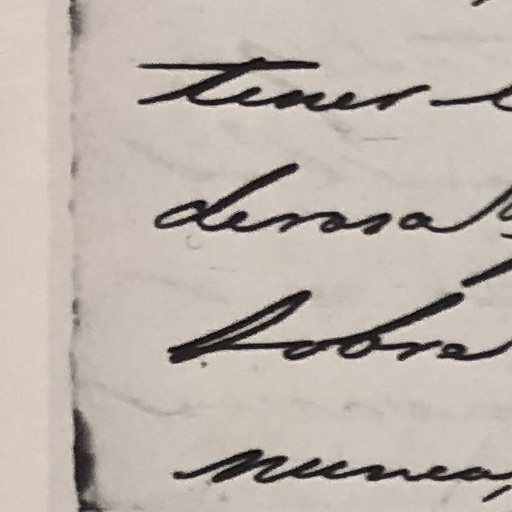 tener
derosa
sobre
nunca,